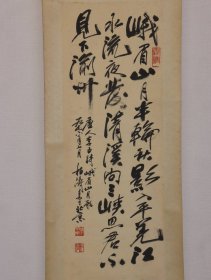 峨眉山月半輪秋影入平羌江
水流夜發清溪向三峡思君不
見下渝州
唐人李白詩峨眉山月歌